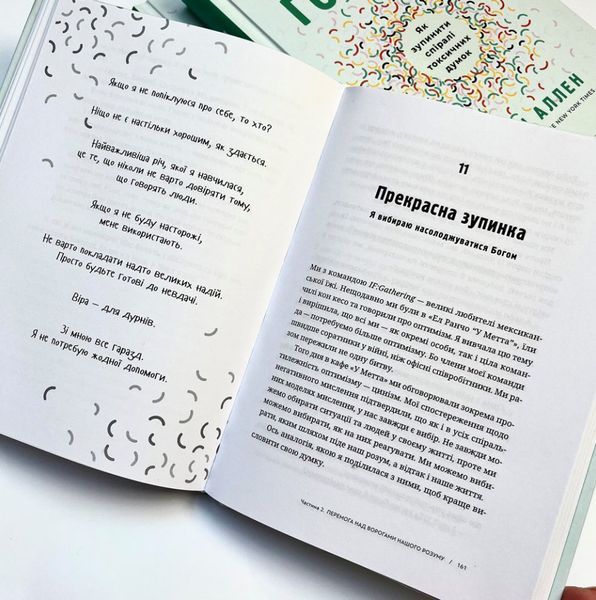 Як
зупинити
спіралі
токсичних
думок
АЛЛЕН
NEW YORK TIMES
Якщо я не попіклуюся про себе, то хто?
Ніщо не є настільки хорошим, як здається.
Найважливіша річ, якої я навчилася,
це те, що ніколи не варто довіряти тому,
що говорять люди.
Якщо я не буду насторожі,
мене використають.
Не варто покладати надто великих надій.
Просто будьте готові до невдачі.
Віра — для дурнів.
Зі мною все гаразд.
Я не потребую жодної допомоги.
11
Прекрасна зупинка
Я вибираю насолоджуватися Богом
Ми з командою IF:Gathering — великі любителі мексикан-
ської їжі. Нещодавно ми були в «Ел Ранчо “У Метта”», їли
чилі кон кесо та говорили про оптимізм. Я вивчала цю тему
й вирішила, що всі ми — як окремі особи, так і ціла коман-
да — потребуємо більше оптимізму. Бо члени моєї команди
швидше соратники у війні, ніж офісні співробітники. Ми ра-
зом пережили не одну битву.
Того дня в кафе «У Метта» ми обговорювали зокрема про-
тилежність оптимізму — цинізм. Мої спостереження щодо
негативного мислення підтвердили, що як і в усіх спіраль-
них моделях мислення, у нас завжди є вибір. Не завжди мо-
жемо обирати ситуації та людей у своєму житті, проте ми
можемо вибирати, як на них реагувати. Ми можемо виби-
рати, яким шляхом піде наш розум, а відтак і наше життя.
Ось аналогія, якою я поділилася з ними, щоб краще ви-
словити свою думку.
Частина 2. ПЕРЕМОГА НАД ВОРОГАМИ НАШОГО РОЗУМУ / 161